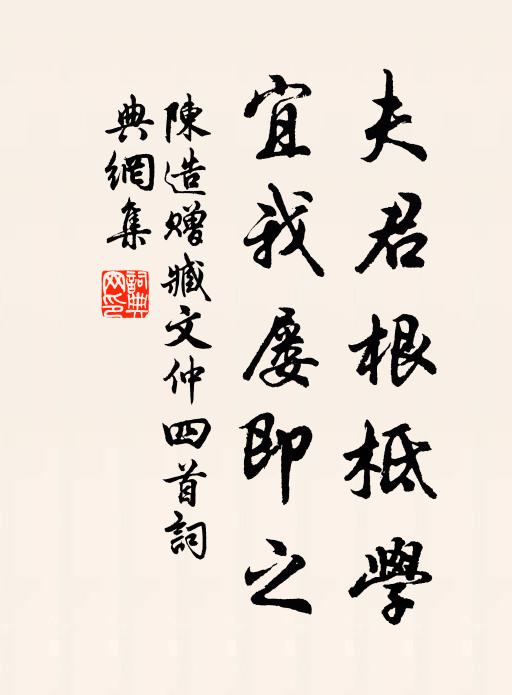 夫君根柢學
宜我屡即之
陳造贈臧文仲四首詞
典網集
詞典
网印